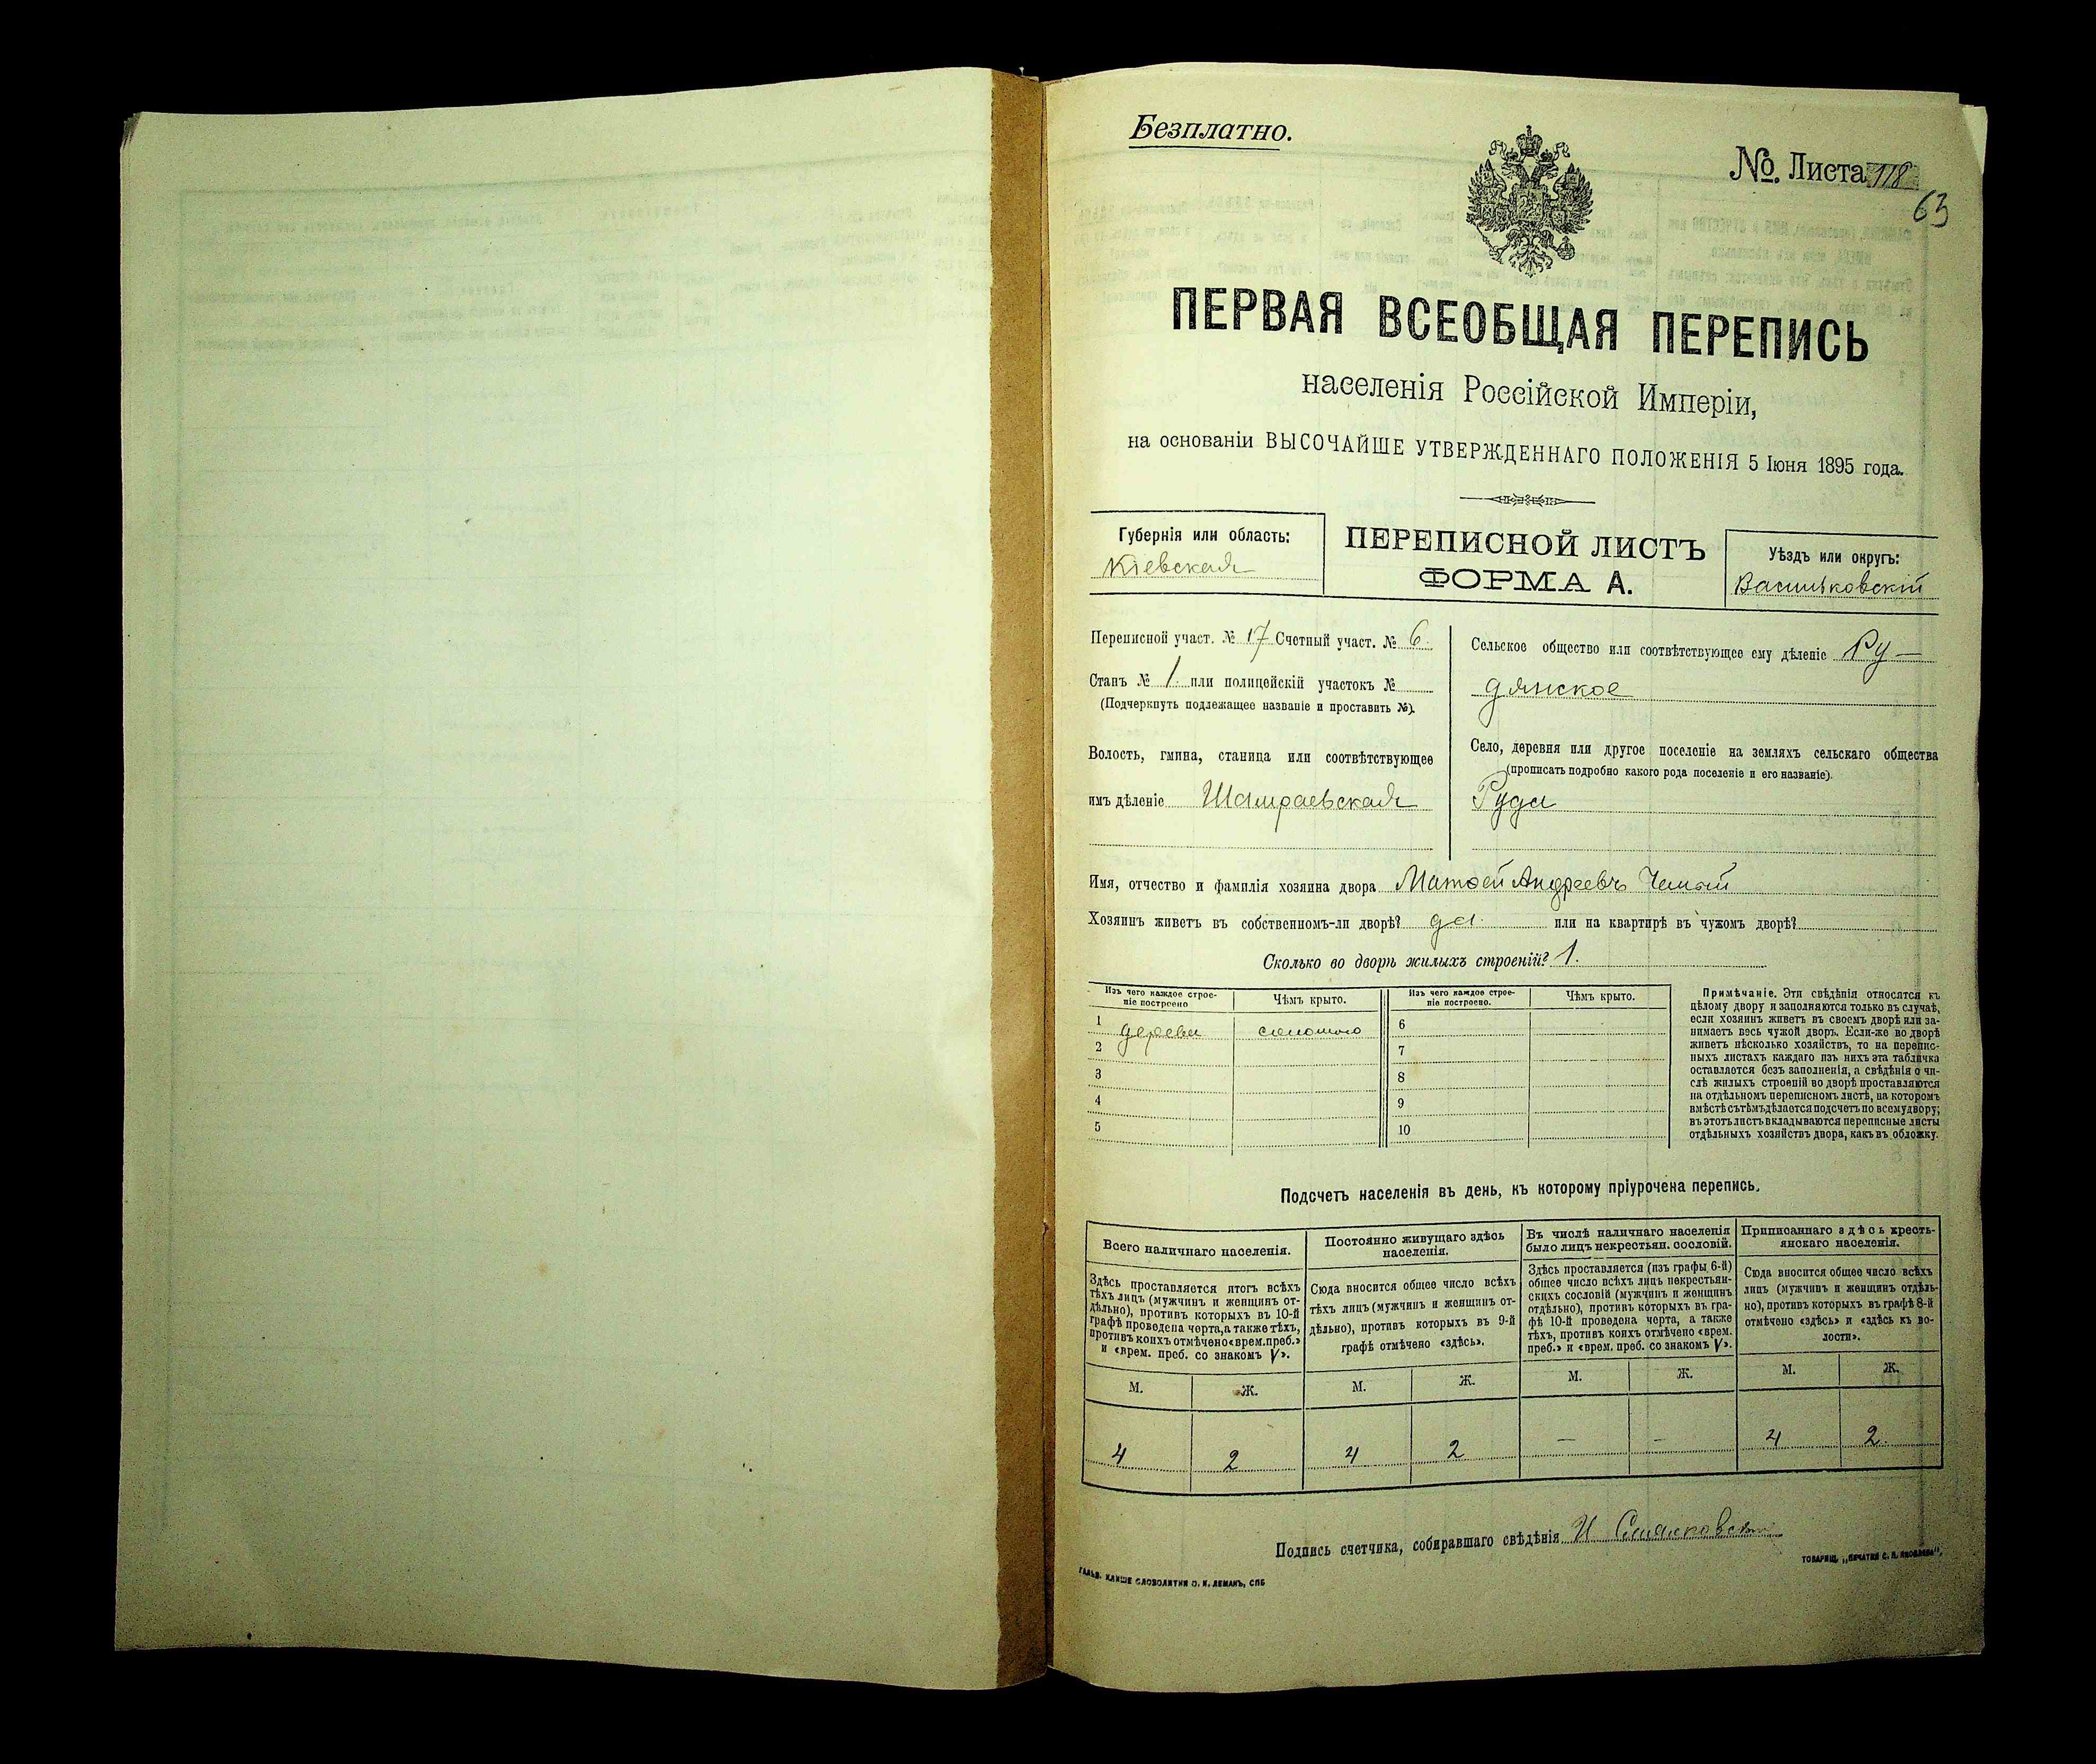 Безплатно.
№. Листа 118
63
ПЕРВАЯ ВСЕОБЩАЯ ПЕРЕПИСЬ
населенія Россійской Имперіи,
на основаніи ВЫСОЧАЙШЕ УТВЕРЖДЕННАГО ПОЛОЖЕНІЯ 5 Іюня 1895 года.
Губернія или область:
Кіевская
ПЕРЕПИСНОЙ ЛИСТЪ
ФОРМА А.
Уѣздъ или округъ:
Васильковскій
Переписной участ. № 17 Счетный участ. № 6.
Станъ № 1. или полицейскій участокъ №
(Подчеркнуть подлежащее названіе и проставить №).
Волость, гмина, станица или соотвѣтствующее
имъ дѣленіе Шамраевская
Сельское общество или соотвѣтствующее ему дѣленіе Ру-
дянское
Село, деревня или другое поселеніе на земляхъ сельскаго общества
(прописать подробно какого рода поселеніе и его названіе).
Руда
Имя, отчество и фамилія хозяина двора Матѳей Андреевъ
Хозяинъ живетъ въ собственномъ-ли дворѣ? да. или на квартирѣ въ чужомъ дворѣ?
Сколько во дворѣ жилыхъ строеній? 1.
Изъ чего каждое строе-
ніе построено
Чѣмъ крыто.
Изъ чего каждое строе-
ніе построено.
Чѣмъ крыто.
1 дерева соломою 6
2 7
3 8
4 9
5 10
Примѣчаніе. Эти свѣдѣнія относятся къ
цѣлому двору и заполняются только въ случаѣ,
если хозяинъ живетъ въ своемъ дворѣ или за-
нимаетъ весь чужой дворъ. Если-же во дворѣ
живетъ нѣсколько хозяйствъ, то на перепис-
ныхъ листахъ каждаго изъ нихъ эта табличка
оставляется безъ заполненія, а свѣдѣнія о чи-
слѣ жилыхъ строеній во дворѣ проставляются
на отдѣльномъ переписномъ листѣ, на которомъ
вмѣстѣ съ тѣмъ дѣлается подсчетъ по всему двору;
въ этотъ листъ вкладываются переписные листы
отдѣльныхъ хозяйствъ двора, какъ въ обложку.
Подсчетъ населенія въ день, къ которому пріурочена перепись.
Всего наличнаго населенія.
Здѣсь проставляется итогъ всѣхъ
тѣхъ лицъ (мужчинъ и женщинъ от-
дѣльно), противъ которыхъ въ 10-й
графѣ проведена черта, а также тѣхъ,
противъ коихъ отмѣчено «врем. преб.»
и «врем. преб. со знакомъ V».
Постоянно живущаго здѣсь
населенія.
Сюда вносится общее число всѣхъ
тѣхъ лицъ (мужчинъ и женщинъ от-
дѣльно), противъ которыхъ въ 9-й
графѣ отмѣчено «здѣсь».
Въ числѣ наличнаго населенія
было лицъ некрестьян. сословій.
Здѣсь проставляется (изъ графы 6-й)
общее число всѣхъ лицъ некрестьян-
скихъ сословій (мужчинъ и женщинъ
отдѣльно), противъ которыхъ въ гра-
фѣ 10-й проведена черта, а также
тѣхъ, противъ коихъ отмѣчено «врем.
преб.» и «врем. преб. со знакомъ V».
Приписаннаго здѣсь кресть-
янскаго населенія.
Сюда вносится общее число всѣхъ
лицъ (мужчинъ и женщинъ отдѣль-
но), противъ которыхъ въ графѣ 8-й
отмѣчено «здѣсь» и «здѣсь къ во-
лости».
М. Ж. М. Ж. М. Ж. М. Ж.
4 2 4 2 — — 4 2.
Подпись счетчика, собиравшаго свѣдѣнія И
ГАЛЬВ. КЛИШЕ СЛОВОЛИТНИ О. И. ЛЕМАНЪ, СПБ
ТОВАРИЩ. „ПЕЧАТНЯ С. П. ЯКОВЛЕВА“.